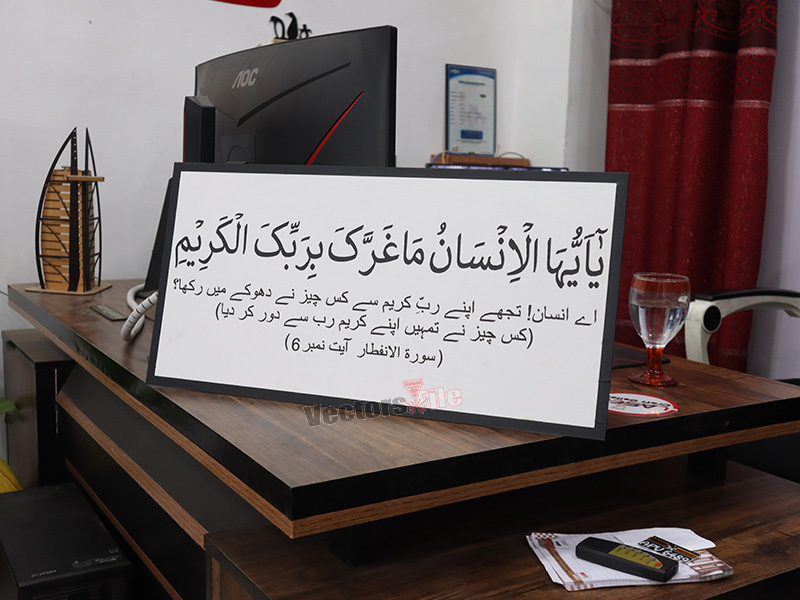 AOC
يٰٓاَيُّهَا الْاِنْسَانُ مَا غَرَّكَ بِرَبِّكَ الْكَرِيْمِ
اے انسان! تجھے اپنے ربِّ کریم سے کس چیز نے دھوکے میں رکھا؟
(کس چیز نے تمہیں اپنے کریم رب سے دور کر دیا)
(سورۃ الانفطار آیت نمبر 6)
VectorsFile